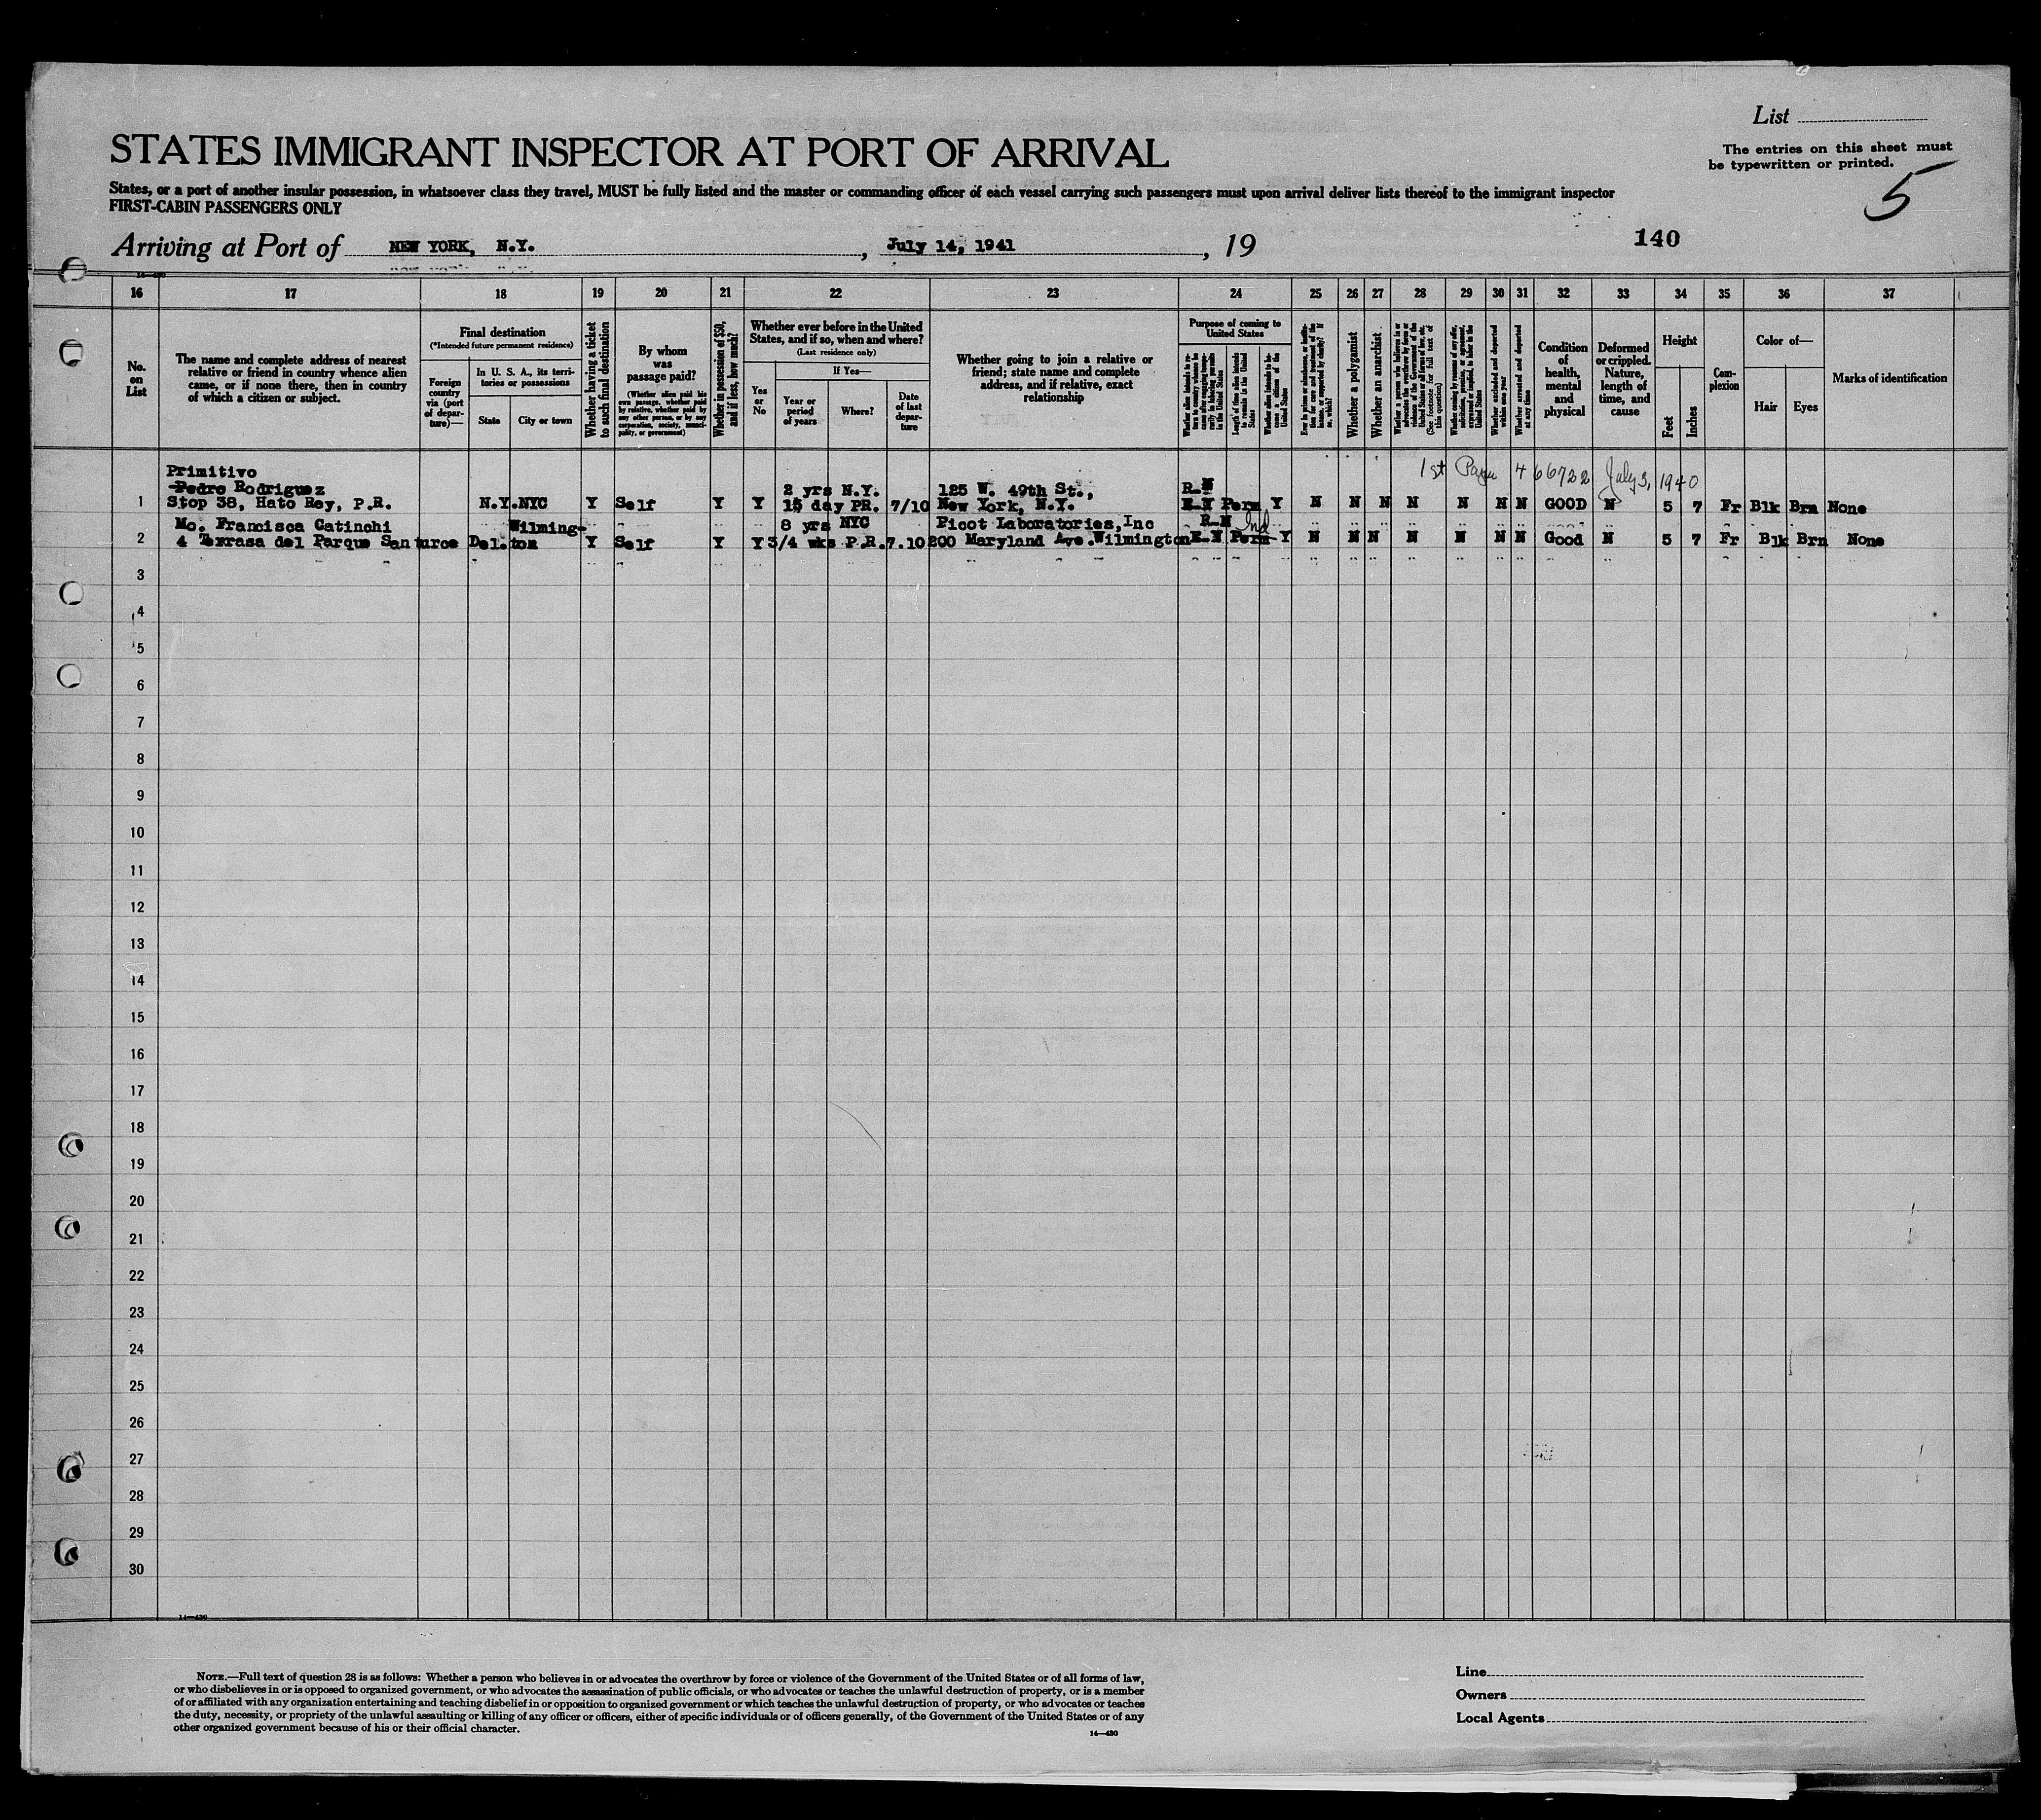 List
The entries on this sheet must
be typewritten or printed.
5
STATES IMMIGRANT INSPECTOR AT PORT OF ARRIVAL
States, or a port of another insular possession, in whatsoever class they travel, MUST be fully listed and the master or commanding officer of each vessel carrying such passengers must upon arrival deliver lists thereof to the immigrant inspector
FIRST-CABIN PASSENGERS ONLY
Arriving at Port of NEW YORK, N.Y., July 14, 1941, 19
140
16 17 18 19 20 21 22 23 24 25 26 27 28 29 30 31 32 33 34 35 36 37
No.
on
List
The name and complete address of nearest
relative or friend in country whence alien
came, or if none there, then in country
of which a citizen or subject.
Final destination
(*Intended future permanent residence)
Foreign
country
via (port
of depar-
ture)—
In U. S. A., its terri-
tories or possessions
State
City or town
Whether having a ticket
to such final destination
By whom
was
passage paid?
(Whether alien paid his
own passage, whether paid
by relative, whether paid by
any other person, or by any
corporation, society, munici-
pality, or government)
Whether in possession of $50,
and if less, how much?
Whether ever before in the United
States, and if so, when and where?
(Last residence only)
Yes
or
No
If Yes—
Year or
period
of years
Where?
Date
of last
depar-
ture
Whether going to join a relative or
friend; state name and complete
address, and if relative, exact
relationship
Purpose of coming to
United States
Whether alien intends to re-
turn to country whence he
came after engaging tempo-
rarily in laboring pursuits
in the United States
Length of time alien intends
to remain in the United
States
Whether alien intends to be-
come a citizen of the
United States
Ever in prison or almshouse, or institu-
tion for care and treatment of the
insane, or supported by charity? If
so, which?
Whether a polygamist
Whether an anarchist
Whether a person who believes in or
advocates the overthrow by force or
violence of the Government of the
United States or all forms of law, etc.
(See footnote for full text of
this question)
Whether coming by reason of any offer,
solicitation, promise, or agreement,
expressed or implied, to labor in the
United States
Whether excluded and deported
within one year
Whether arrested and deported
at any time
Condition
of
health,
mental
and
physical
Deformed
or crippled.
Nature,
length of
time, and
cause
Height
Feet
Inches
Com-
plexion
Color of—
Hair
Eyes
Marks of identification
1st Paper 466722 July 3, 1940
Primitivo
Pedro Rodriguez 2 yrs N.Y. 125 W. 49th St., R-N
1 Stop 38, Hato Rey, P.R. N.Y. NYC Y Self Y Y 15 day PR. 7/10 New York, N.Y. N-N Perm Y N N N N N N N GOOD N 5 7 Fr Blk Brn None
Mo. Francisca Catinchi Wilming- 8 yrs NYC Picot Laboratories, Inc R-N Ind
2 4 Terrasa del Parque Santurce Del. ton Y Self Y Y 3/4 wks P.R. 7.10 200 Maryland Ave. Wilmington N-N Perm Y N N N N N N N Good N 5 7 Fr Blk Brn None
3
4
5
6
7
8
9
10
11
12
13
14
15
16
17
18
19
20
21
22
23
24
25
26
27
28
29
30
14—430
NOTE.—Full text of question 28 is as follows: Whether a person who believes in or advocates the overthrow by force or violence of the Government of the United States or of all forms of law,
or who disbelieves in or is opposed to organized government, or who advocates the assassination of public officials, or who advocates or teaches the unlawful destruction of property, or is a member
of or affiliated with any organization entertaining and teaching disbelief in or opposition to organized government or which teaches the unlawful destruction of property, or who advocates or teaches
the duty, necessity, or propriety of the unlawful assaulting or killing of any officer or officers, either of specific individuals or of officers generally, of the Government of the United States or of any
other organized government because of his or their official character.
14—430
Line
Owners
Local Agents